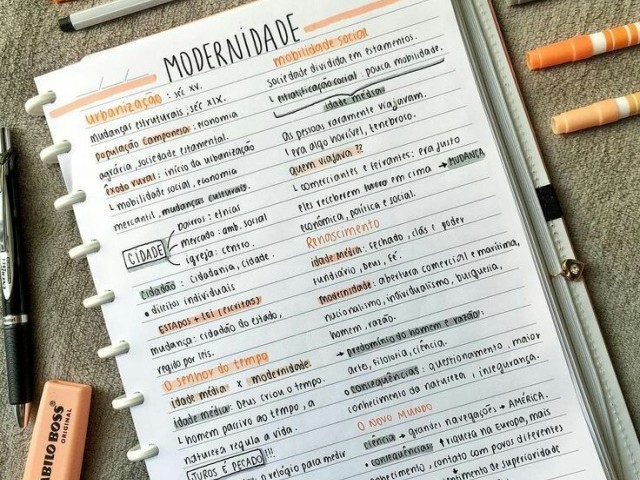 MODERNIDADE
urbanização: séc XV.
mudanças estruturais, séc XIX.
população camponesa: economia
agrária, sociedade estamental.
êxodo rural: início da urbanização
↳ mobilidade social, economia
mercantil, mudanças culturais.
CIDADE
bairros: etnias
mercado: amb. social
igreja: centro.
cidadão: cidadania, cidade.
• direitos individuais
ESTADOS + lei (escritas)
mudança: cidadão do estado,
regido por leis.
O senhor do tempo
idade média x modernidade.
idade média: Deus criou o tempo.
↳ homem passivo ao tempo, a
natureza regula a vida.
JUROS É PECADO!!!
o relógio para medir
mobilidade social
sociedade dividida em estamentos.
↳ estratificação social: pouca mobilidade.
idade média
As pessoas raramente viajavam.
↳ pra algo horrível, tenebroso.
Quem viajava??
↳ comerciantes e feirantes: pra justo
eles receberem lucro em cima → MUDANÇA
econômica, política e social.
Renascimento
idade média: fechado, clãs e poder
fundiário, Deus, fé.
Modernidade: abertura comercial e marítima,
nacionalismo, individualismo, burguesia,
homem, razão.
→ predomínio do homem e razão:
arte, filosofia, ciência.
consequências: questionamento, maior
conhecimento da natureza, insegurança.
O NOVO MUNDO
ciência → grandes navegações → AMÉRICA.
• consequências: ↑ riqueza na Europa, mais
conhecimento, contato com povos diferentes
sentimento de superioridade
ABILO BOSS
ORIGINAL